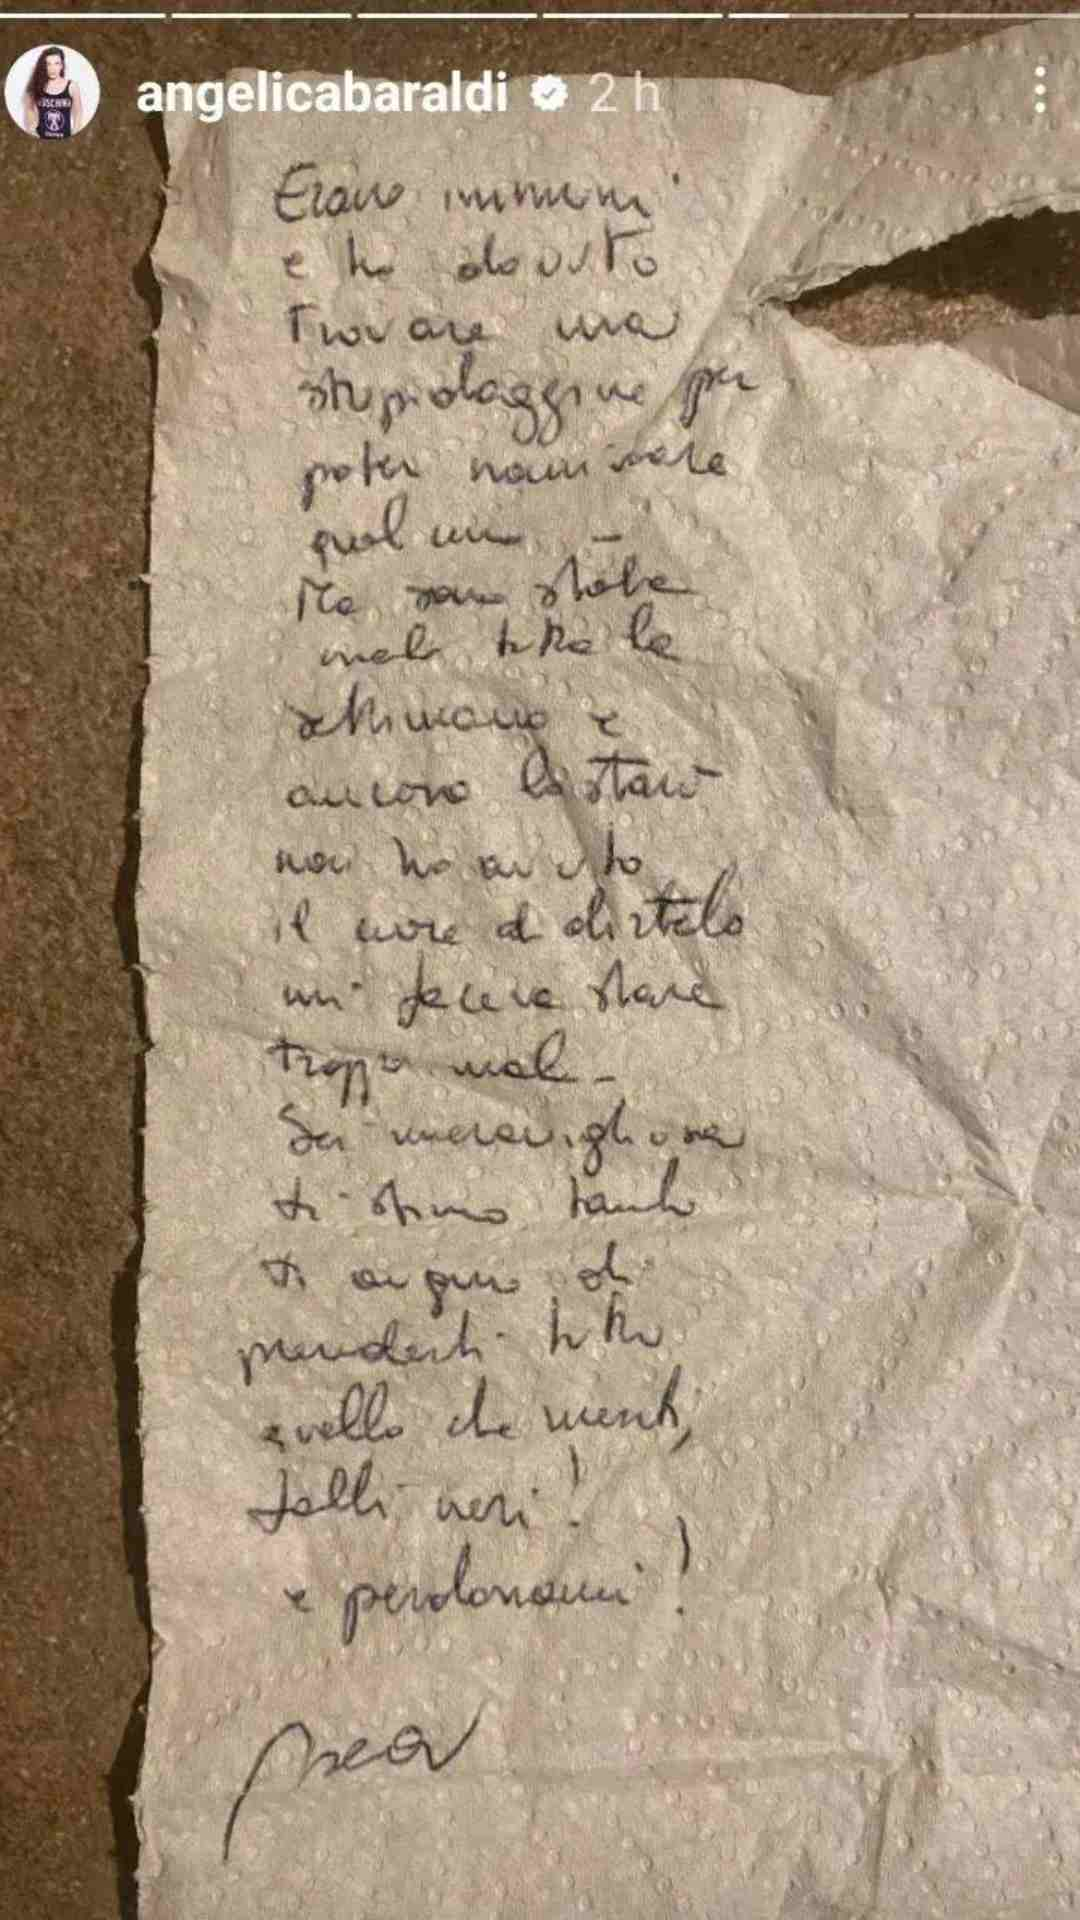 angelicabaraldi 2 h
Erano immuni
e ho dovuto
trovare una
stupidaggine per
poter nominare
qualcuno -
Ma sono stata
male tutta la
settimana e
ancora lo starò
non ho avuto
il cuore di dirtelo
mi faceva stare
troppo male -
Sei meravigliosa
ti stimo tanto
ti auguro di
prenderti tutto
quello che meriti,
falli neri!
e perdonami!